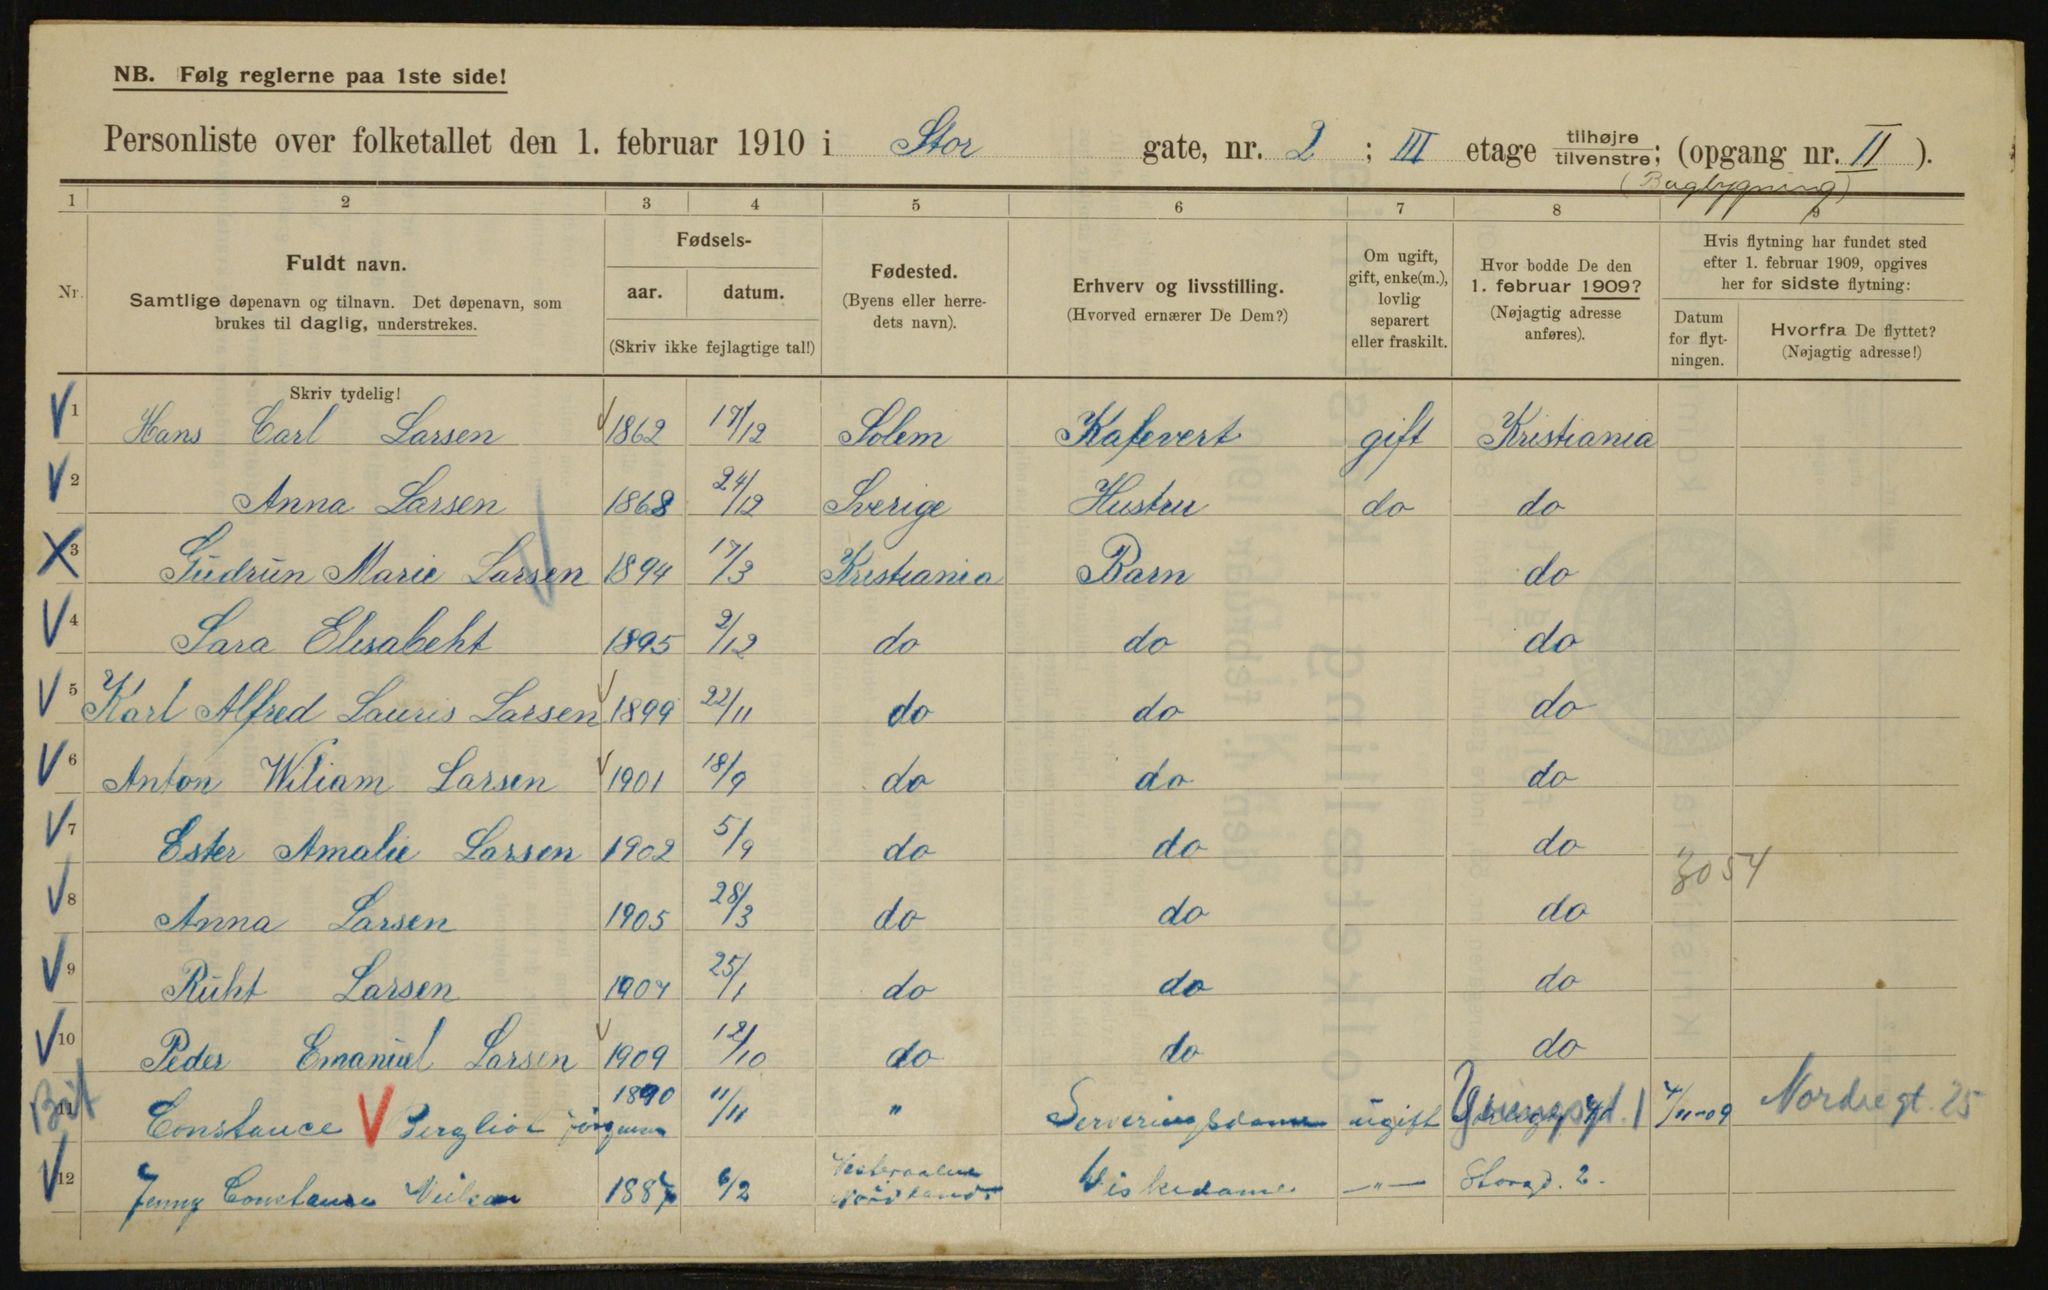 NB. Følg reglerne paa 1ste side!
Personliste over folketallet den 1. februar 1910 i Stor gate, nr. 2 ; III etage tilhøjre/tilvenstre; (opgang nr. II ).
(Bagbygning)
1 2 3 4 5 6 7 8 9
Nr.
Fuldt navn.
Samtlige døpenavn og tilnavn. Det døpenavn, som
brukes til daglig, understrekes.
Skriv tydelig!
Fødsels-
aar. datum.
(Skriv ikke fejlagtige tal!)
Fødested.
(Byens eller herre-
dets navn).
Erhverv og livsstilling.
(Hvorved ernærer De Dem?)
Om ugift,
gift, enke(m.),
lovlig
separert
eller fraskilt.
Hvor bodde De den
1. februar 1909?
(Nøjagtig adresse
anføres).
Hvis flytning har fundet sted
efter 1. februar 1909, opgives
her for sidste flytning:
Datum
for flyt-
ningen.
Hvorfra De flyttet?
(Nøjagtig adresse!)
1 Hans Carl Larsen 1862 17/12 Solem Kafevert gift Kristiania
2 Anna Larsen 1868 24/12 Sverige Hustru do do
3 Gudrun Marie Larsen 1894 17/3 Kristiania Barn do
4 Sara Elisabeht 1895 2/12 do do do
5 Karl Alfred Lauris Larsen 1899 22/11 do do do
6 Anton Wiliam Larsen 1901 18/9 do do do
7 Ester Amalie Larsen 1902 5/9 do do do
8 Anna Larsen 1905 28/3 do do do
3054
9 Ruht Larsen 1907 25/1 do do do
10 Peder Emanuel Larsen 1909 12/10 do do do
11 Constance 1890 11/11 " Serveringsdame ugift 7/11-09 Nordregt. 25
12 Jenny Constance 1887 6/2 Vesteraalen Nordland Viskedame -"- Storgd. 2.